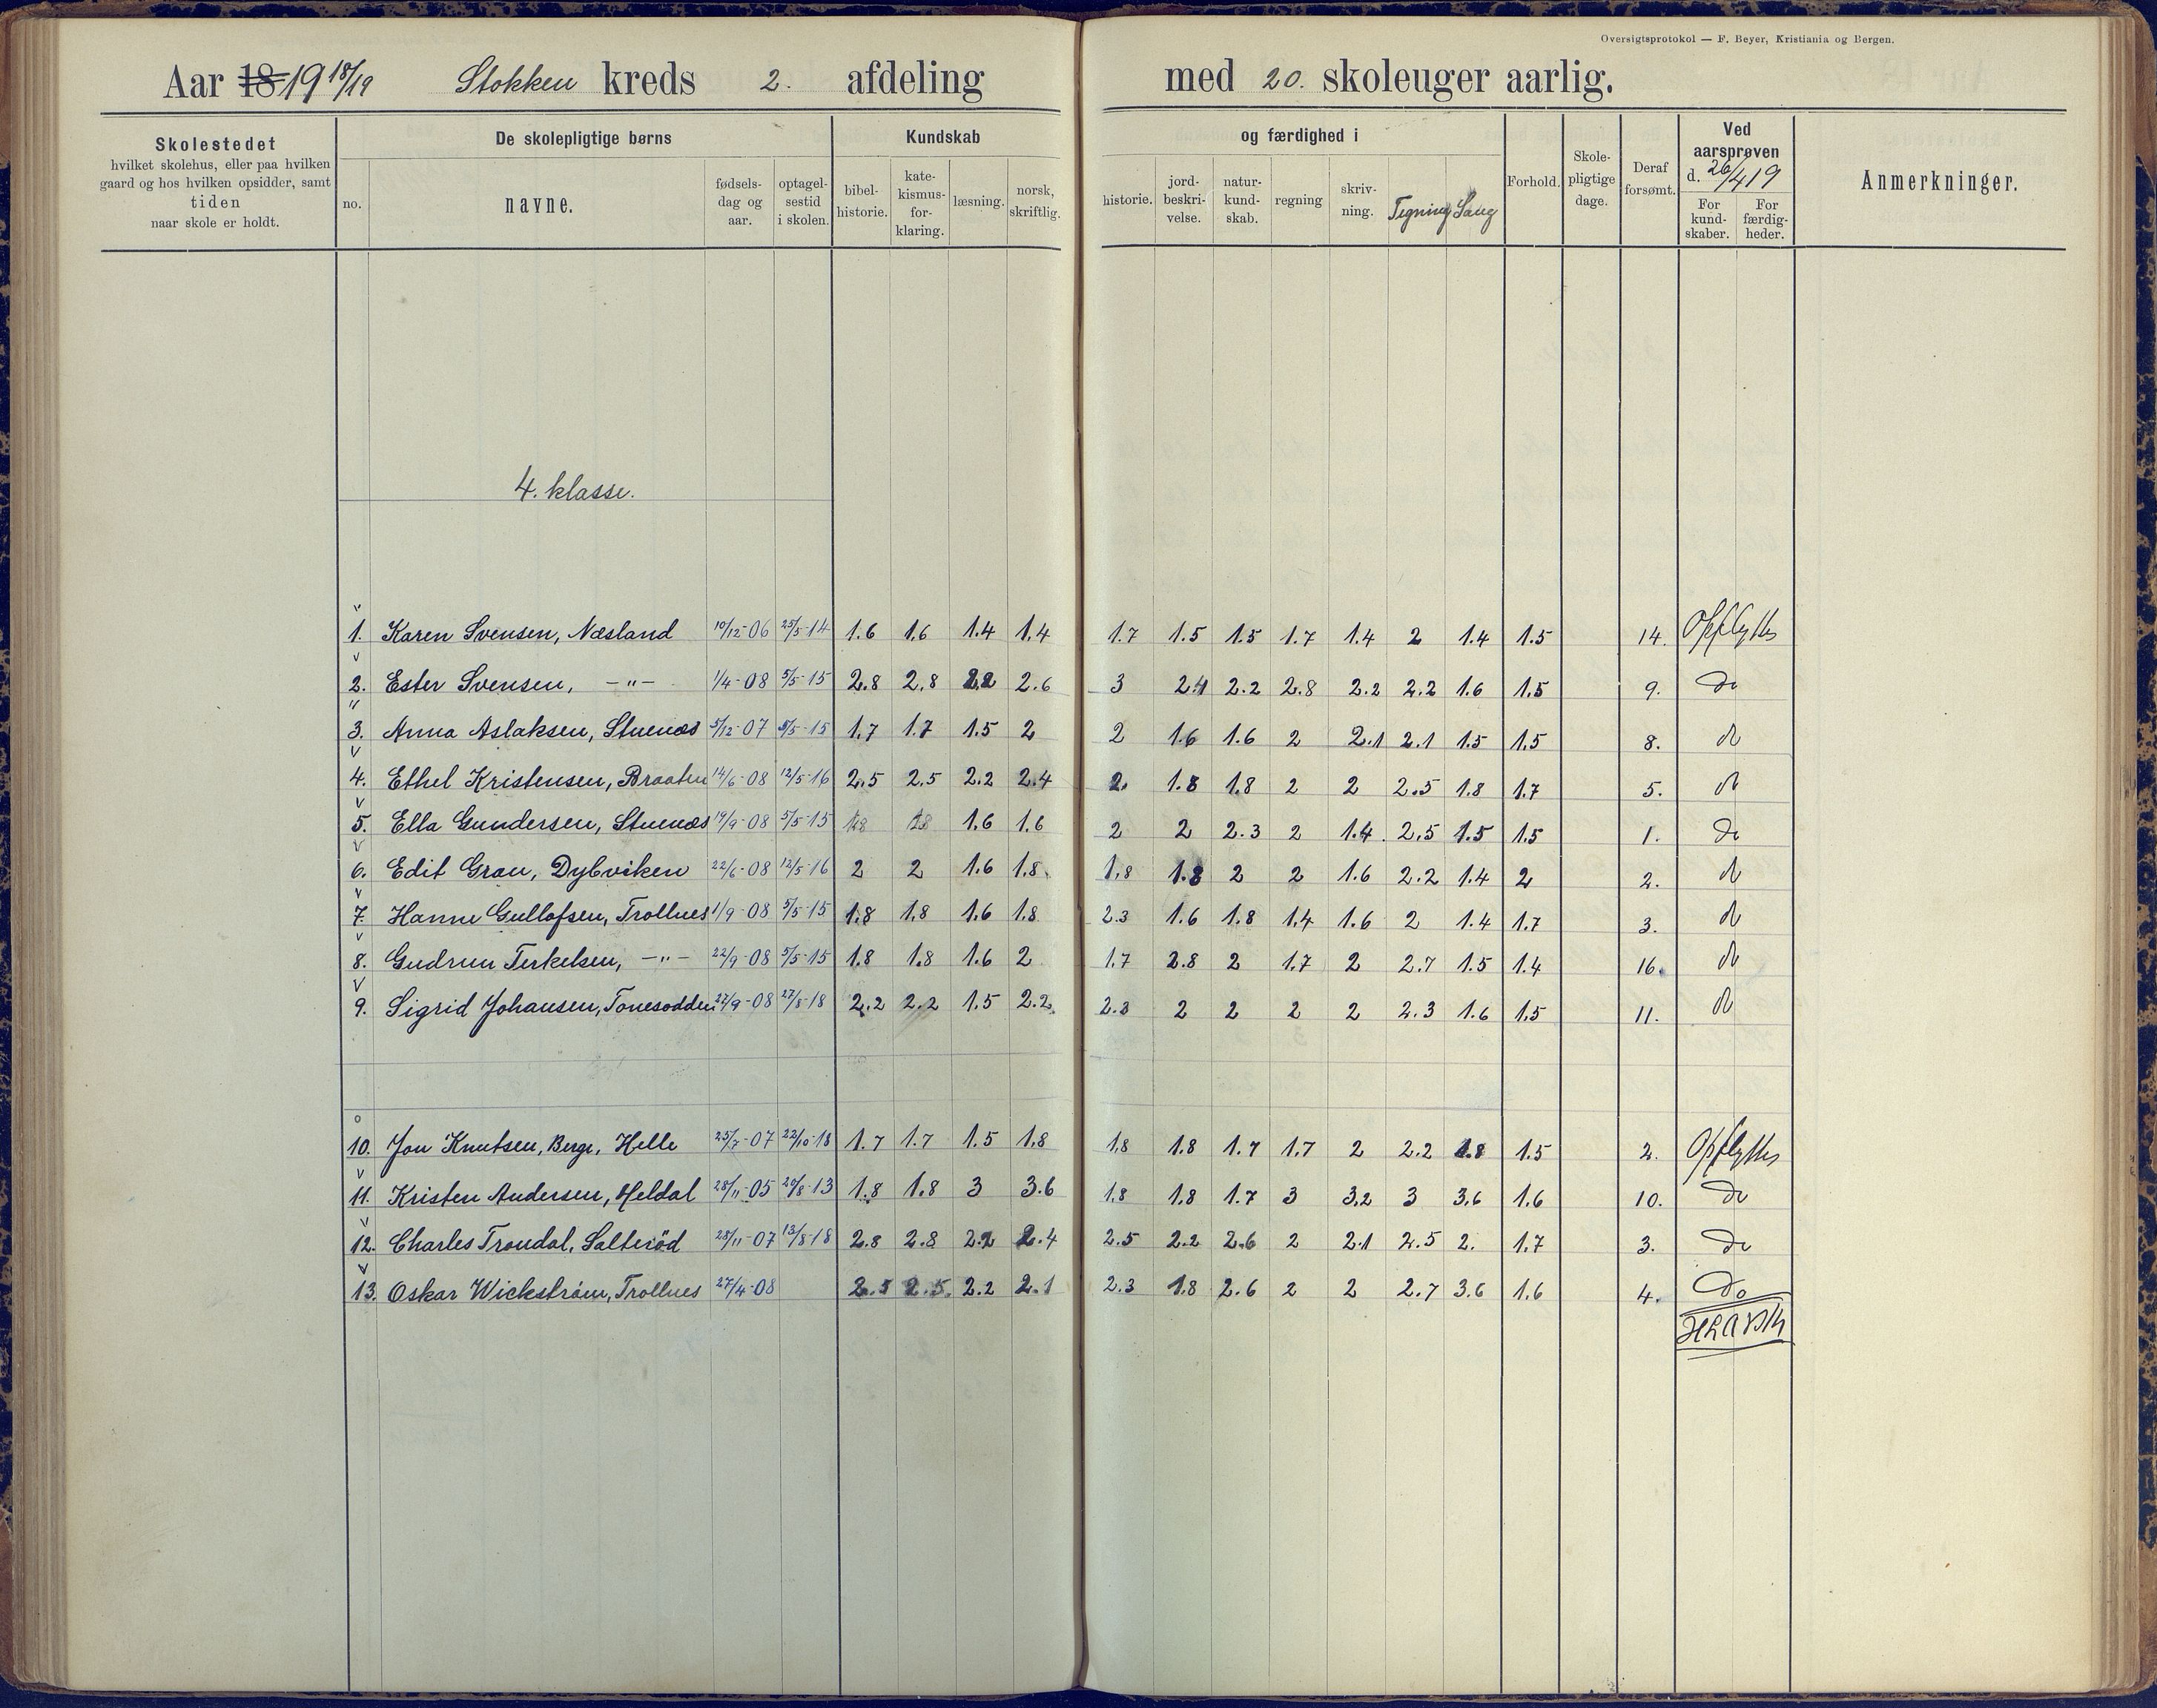 Oversigtsprotokol — F. Beyer, Kristiania og Bergen.
Aar 18 19 18/19 Stokken kreds 2. afdeling med 20. skoleuger aarlig.
Skolestedet
hvilket skolehus, eller paa hvilken
gaard og hos hvilken opsidder, samt
tiden
naar skole er holdt.
De skolepligtige børns
no.
navne.
fødsels-
dag og
aar.
optagel-
sestid
i skolen.
Kundskab
bibel-
historie.
kate-
kismus-
for-
klaring.
læsning.
norsk,
skriftlig.
og færdighed i
historie.
jord-
beskri-
velse.
natur-
kund-
skab.
regning
skriv-
ning.
Tegning
Sang
Forhold.
Skole-
pligtige
dage.
Deraf
forsømt.
Ved
aarsprøven
d. 26/4 19
For
kund-
skaber.
For
færdig-
heder.
Anmerkninger.
4. klasse.
1. Karen Svensen, Næsland 10/12-06 25/5-14 1.6 1.6 1.4 1.4 1.7 1.5 1.5 1.7 1.4 2 1.4 1.5 14. Opflyttes
2. Ester Svensen, -"- 1/4-08 5/5-15 2.8 2.8 2.2 2.6 3 2.4 2.2 2.8 2.2 2.2 1.6 1.5 9. do
3. Anna Aslaksen, Stuenæs 5/12-07 5/5-15 1.7 1.7 1.5 2 2 1.6 1.6 2 2.1 2.1 1.5 1.5 8. do
4. Ethel Kristensen, Braaten 14/6-08 12/5-16 2.5 2.5 2.2 2.4 2. 1.8 1.8 2 2 2.5 1.8 1.7 5. do
5. Ella Gundersen, Stuenæs 19/9-08 5/5-15 1.8 1.8 1.6 1.6 2 2 2.3 2 1.4. 2.5 1.5 1.5 1. do
6. Edit Grau, Dybviken 22/6-08 12/5-16 2 2 1.6 1.8. 1.8 1.8 2 2 1.6 2.2 1.4 2 2. do
7. Hanne Gullofsen, Trollnes 1/9-08 5/5-15 1.8 1.8 1.6 1.8 2.3 1.6 1.8 1.4 1.6 2 1.4 1.7 3. do
8. Gudrun Terkelsen, -"- 22/9-08 5/5-15 1.8 1.8 1.6 2 1.7 2.8 2 1.7 2 2.7 1.5 1.4 16. do
9. Sigrid Johansen, Tonesodden 22/9-08 27/8-18 2.2 2.2 1.5 2.2 2.3 2 2 2 2 2.3 1.6 1.5 11. do
10. Jon Knutsen, Berge, Helle 25/7-07 22/10-18 1.7 1.7 1.5 1.8 1.8 1.8 1.7 1.7 2 2.2 1.8 1.5 2. Opflyttes
11. Kristen Andersen, Heldal 28/11-05 20/8-13 1.8 1.8 3 3.6 1.8 1.8 1.7 3 3.2 3 3.6 1.6 10. do
12. Charles Trondal, Salterød 28/11-07 13/8-18 2.8 2.8 2.2 2.4 2.5 2.2 2.6 2 2.1 2.5 2. 1.7 3. do
13. Oskar Wickstrøm, Trollnes 27/4-08 2.5 2.5. 2.2 2.1 2.3 1.8 2.6 2 2 2.7 3.6 1.6 4. do